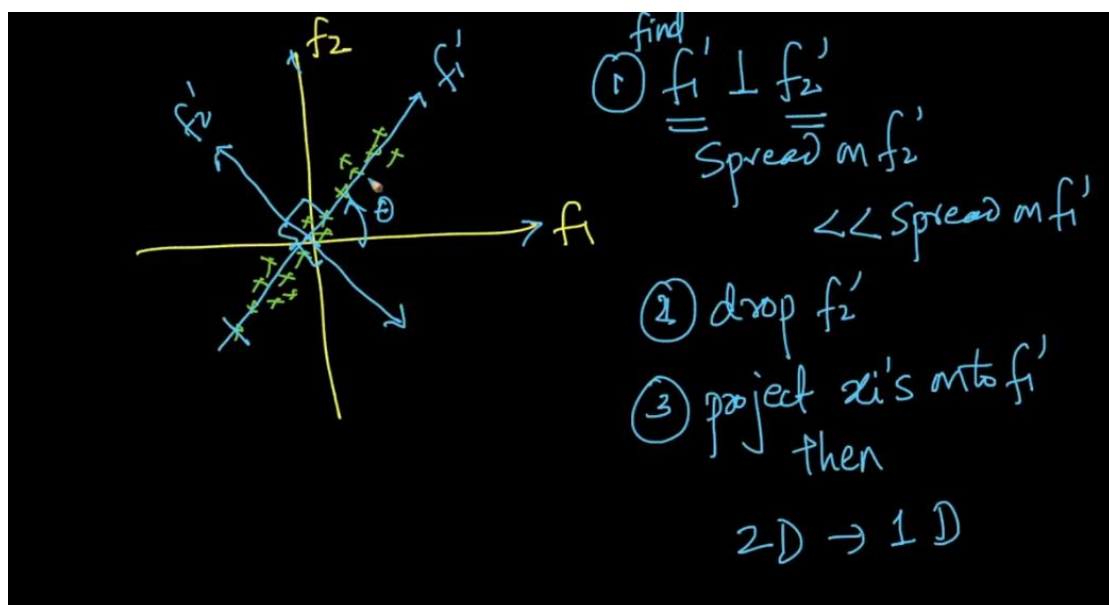 f2
f1'
f2'
θ
f1
find
① f1' ⊥ f2'
Spread on f2'
<< Spread on f1'
② drop f2'
③ project xi's onto f1'
then
2D → 1D